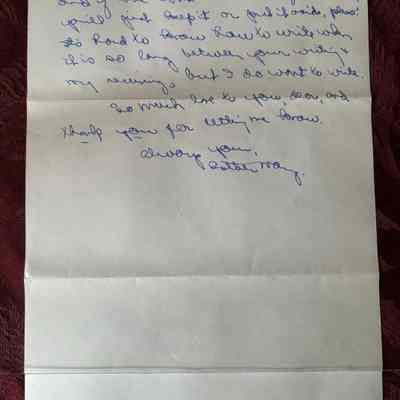 you'll just keep it or put it aside, please
so hard to know how to write when
it is so long between your writing &
my receiving, but I do want to write.
So much love to you, dear, and
thank you for letting me know.
Always your,